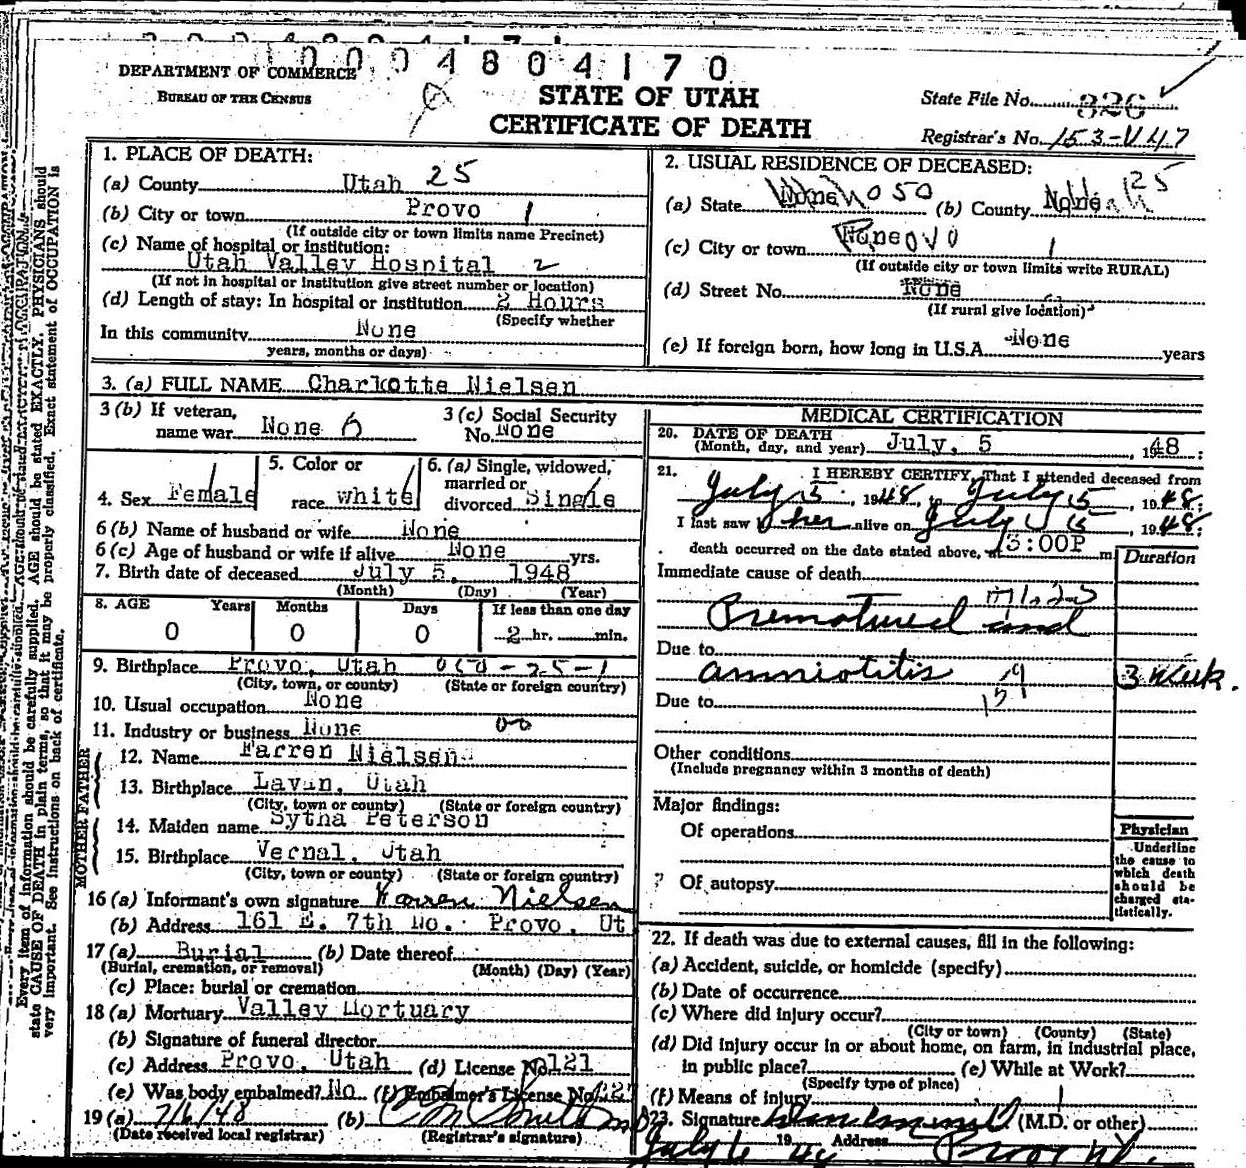 0 0 0 4 8 0 4 1 7 0
DEPARTMENT OF COMMERCE
BUREAU OF THE CENSUS
STATE OF UTAH
CERTIFICATE OF DEATH
State File No. 326
Registrar's No. 153-V47
1. PLACE OF DEATH:
(a) County Utah 25
(b) City or town Provo 1
(If outside city or town limits name Precinct)
(c) Name of hospital or institution:
Utah Valley Hospital 2
(If not in hospital or institution give street number or location)
(d) Length of stay: In hospital or institution 2 Hours
(Specify whether
In this community None
years, months or days)
2. USUAL RESIDENCE OF DECEASED:
(a) State None 050 (b) County None 25
(c) City or town None ovo 1
(If outside city or town limits write RURAL)
(d) Street No. None
(If rural give location)
(e) If foreign born, how long in U.S.A. None years
3. (a) FULL NAME Charkotte Nielsen
3 (b) If veteran, name war None 0
3 (c) Social Security No. None
4. Sex Female
5. Color or race white
6. (a) Single, widowed, married or divorced Single
6 (b) Name of husband or wife None
6 (c) Age of husband or wife if alive None yrs.
7. Birth date of deceased July 5, 1948
(Month) (Day) (Year)
8. AGE Years Months Days If less than one day
0 0 0 2 hr. min.
9. Birthplace Provo, Utah 050-25-1
(City, town, or county) (State or foreign country)
10. Usual occupation None
11. Industry or business None 00
FATHER
12. Name Farren Nielsen
13. Birthplace Levan, Utah
(City, town or county) (State or foreign country)
MOTHER
14. Maiden name Sytha Peterson
15. Birthplace Vernal, Utah
(City, town or county) (State or foreign country)
16 (a) Informant's own signature Farren Nielsen
(b) Address 161 E. 7th No. Provo, Ut
17 (a) Burial (b) Date thereof
(Burial, cremation, or removal) (Month) (Day) (Year)
(c) Place: burial or cremation
18 (a) Mortuary Valley Mortuary
(b) Signature of funeral director
(c) Address Provo, Utah (d) License No. 121
(e) Was body embalmed? No (f) Embalmer's License No.
19 (a) 7/6/48 (b) C M Smith MD
(Date received local registrar) (Registrar's signature)
MEDICAL CERTIFICATION
20. DATE OF DEATH
(Month, day, and year) July, 5, 1948;
21. I HEREBY CERTIFY, That I attended deceased from
July 5, 1948, to July 5, 1948;
I last saw her alive on July 5, 1948;
death occurred on the date stated above, at 3:00P m
Duration
Immediate cause of death
Prematured and
Due to
amniotitis 3 week.
Due to
Other conditions
(Include pregnancy within 3 months of death)
Major findings:
Of operations
? Of autopsy
Physician
Underline
the cause to
which death
should be
charged sta-
tistically.
22. If death was due to external causes, fill in the following:
(a) Accident, suicide, or homicide (specify)
(b) Date of occurrence
(c) Where did injury occur?
(City or town) (County) (State)
(d) Did injury occur in or about home, on farm, in industrial place,
in public place? (e) While at Work?
(Specify type of place)
(f) Means of injury
23. Signature (M.D. or other)
July 6 1948 Address Provo Ut.
Every item of information should be carefully supplied. AGE should be stated EXACTLY. PHYSICIANS should
state CAUSE OF DEATH in plain terms, so that it may be properly classified. Exact statement of OCCUPATION is
very important. See instructions on back of certificate.